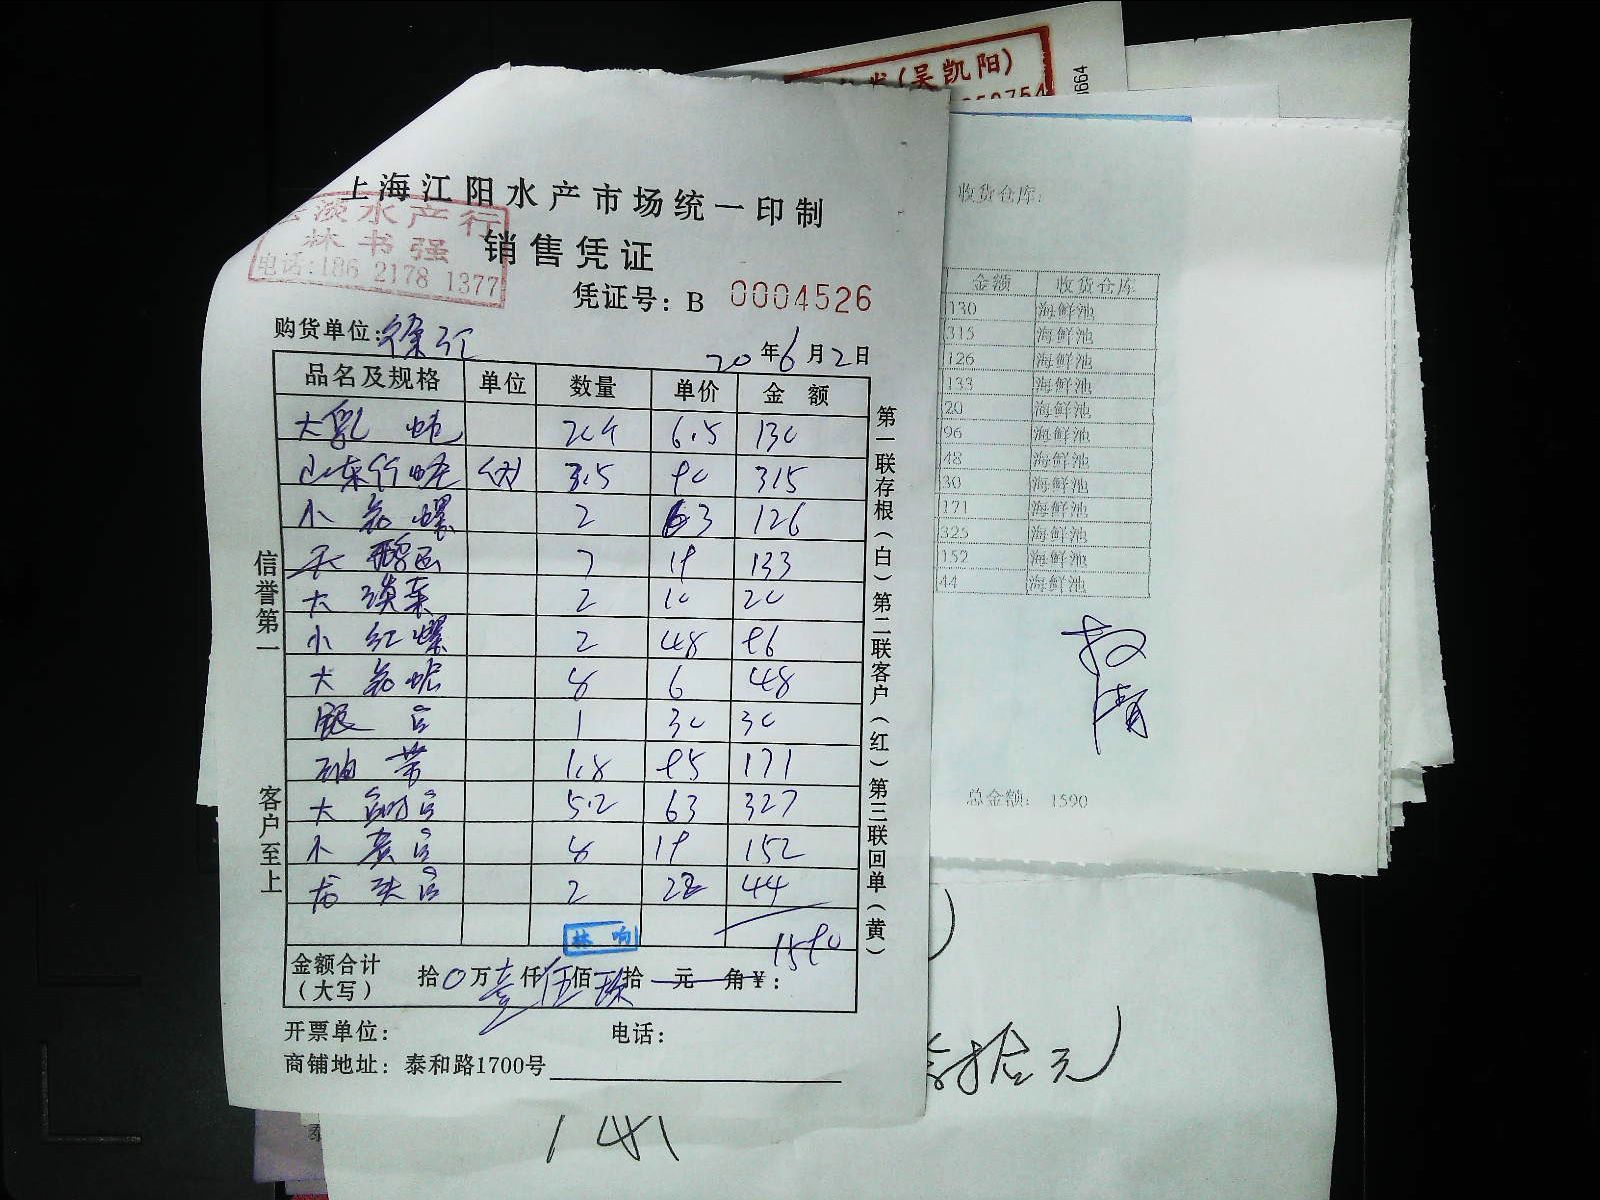 上海江阳水产市场统一印制
淡水产行
林书强
电话:186 2178 1377
销售凭证
凭证号: B 0004526
购货单位:徐汇
20年6月2日
品名及规格 单位 数量 单价 金额
大乳 6.5 130
山东竹蛏 3.5 90 315
小花螺 2 63 126
7 19 133
大 2 10 20
小红螺 2 48 96
大花蛤 8 6 48
银 1 30 30
1.8 95 171
大 5.2 63 327
小 8 19 152
龙头 2 22 44
林 响
1590
金额合计(大写) 拾0万壹仟伍佰玖拾 元 角¥:
开票单位: 电话:
商铺地址: 泰和路1700号
信誉第一
客户至上
第一联存根(白)第二联客户(红)第三联回单(黄)
(吴凯阳)
收货仓库:
金额 收货仓库
130 海鲜池
315 海鲜池
126 海鲜池
133 海鲜池
20 海鲜池
96 海鲜池
48 海鲜池
30 海鲜池
171 海鲜池
325 海鲜池
152 海鲜池
44 海鲜池
总金额: 1590
拾元
141